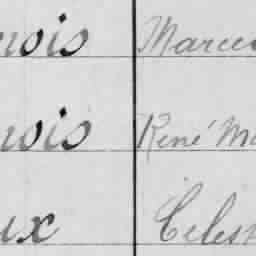 nois Marce
nois René Ma
ux Celes